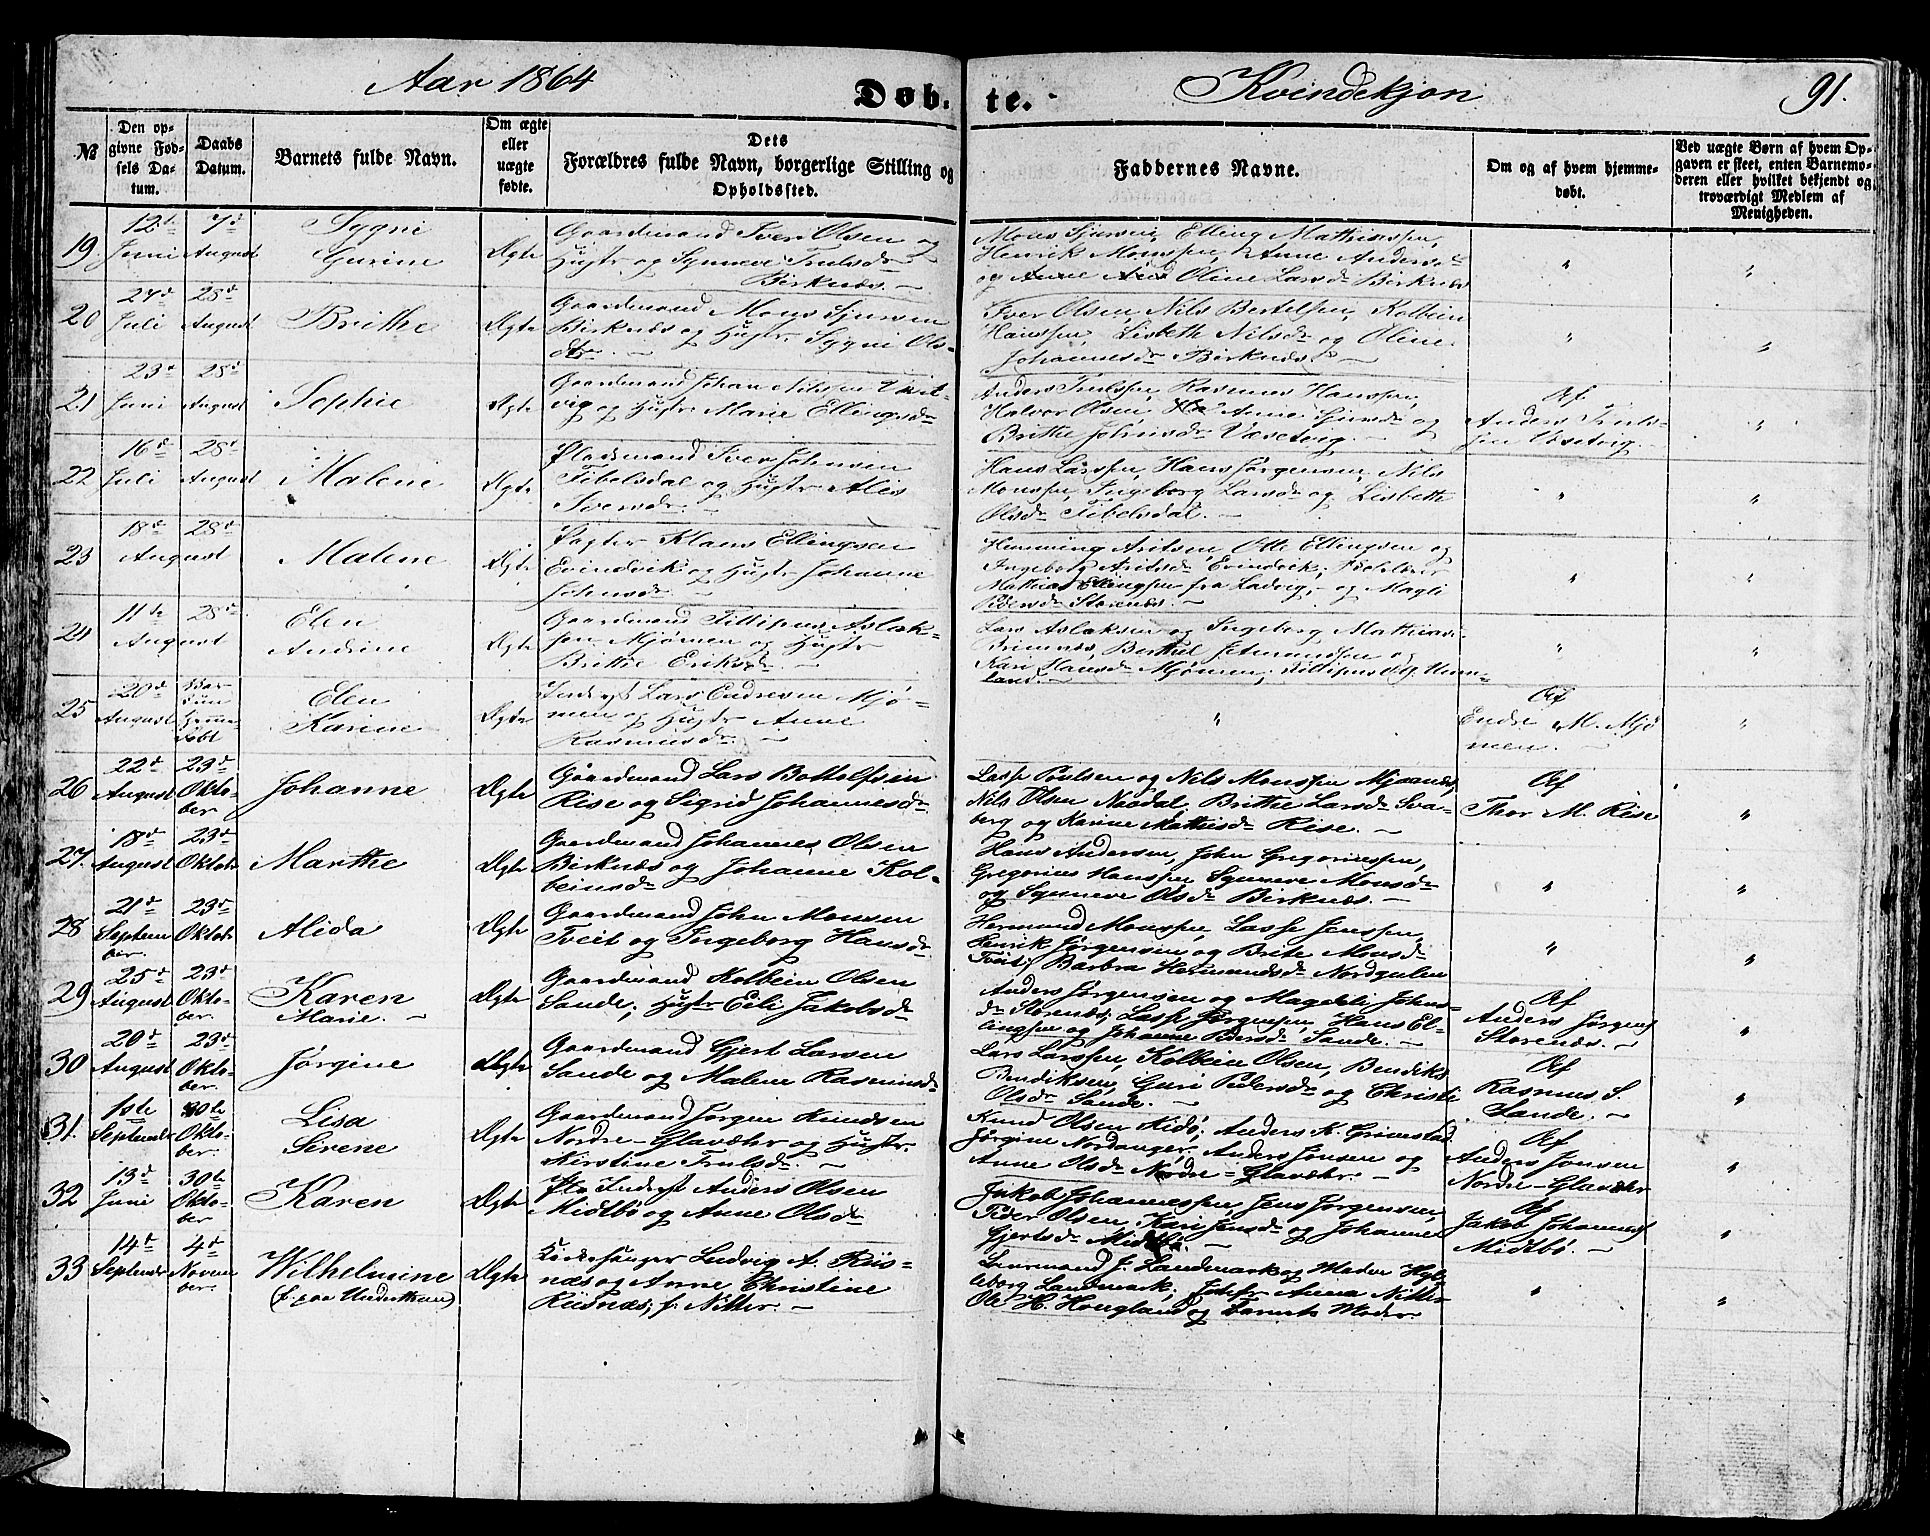 Aar 1864
Døb-te.
Kvindekjøn
91.
№
Den opgivne Fødsels Datum.
Daabs Datum.
Barnets fulde Navn.
Om ægte eller uægte fødte.
Dets Forældres fulde Navn, borgerlige Stilling og Opholdssted.
Faddernes Navne.
Om og af hvem hjemmedøbt.
Ved uægte Børn af hvem Opgaven er skeet, enten Barnemoderen eller hvilket bekjendt og troværdigt Medlem af Menigheden.
19. 12te Juni
7de August
Sygni
Gurine
Ægte
Gaardmand Iver Olsen og
Hustr og Synneve Trulsdr
Birknæs. —
Mons Sjursen, Elling Mathiassen,
Henrik Monssen, Anne Andersdr
og Oline Larsdr Birknæs
20 27de Juli
28de August
Brithe
Ægte
Gaardmand Mons Sjursen
Birknæs og Hustr Sygni Ols-
dtr. —
Iver Olsen, Nils Bertelsen, Kolbein
Hanssen, Lisbeth Nilsdr og Oline
Johannesdr Birknæs. —
21 23de Juni
28de August
Sophie
Ægte
Gaardmand Johan Nilssen
vig og Hustr Marie Ellingsdr
Anders Trulssen, Rasmus Hanssen,
Halvor Olsen, Anne Sjursdr og
Brithe Johnsdr
Af
Anders Truls-
sen
22 16de Juli
28de August
Malene
Ægte
Pladsmand Iver Johnsen
Tibelsdal og Hustr Alis
Iversdr. —
Hans Larssen, Hans Jørgensen, Nils
Monssen, Ingeborg Larsdr og Lisbeth
Olsdr Tibelsdal. —
23 18de August
28de
Malene
Ægte
Pagter Klaus Ellingsen
Evindvik og Hustr Johanne
Johnsdr. —
Hemming Aritsen, Otte Ellingsen og
Ingeborg Aritsdr Evindvik,
Mathias Ellingsen fra Ladvig, og Magli
Pedersdr Storenæs. —
24 11te August
28de
Elen
Andrine
Ægte
Gaardmand Fillipus Aslak-
sen Mjømen og Hustr
Brithe Eriksdr. —
Lars Aslaksen og Ingeborg Mathias-
Brimnæs, Berthel og
Kari Hansdr Mjømen,
25 20de August
Elen
Karine
Ægte
Inderst Lars Endresen Mjø-
men og Hustr Anne
Rasmusdr. —
Af
Endre M. Mjø-
men. —
26 22de August
23de Oktober
Johanne
Ægte
Gaardmand Lars Bottolfsen
Rise og Sigrid Johannesdr
Lasse Poulsen og Nils Monssen Mjaanæs,
Nils Olsen Naadal, Brithe Larsdr Sva-
berg og Karine Mathisdr Rise. —
Af
Thor M. Rise
27. 18de August
23de Oktob
Marthe
Ægte
Gaardmand Johannes Olsen
Birknæs og Johanne Kol-
beinsdr
Hans Andersen, John Gregoriussen,
Gregorius Hanssen Synneve Monsdr
og Synneve Olsdr Birknæs. —
28 21de September
23de Oktob
Alida
Ægte
Gaardmand John Monsen
Tveit og Ingeborg Hansdr
Hermund Monssen, Lasse Jenssen,
Henrik Jørgensen og Brite Monsdr
Tveit; Barbra Hermundsdr Nordgulen
29 25de August
23de Oktober
Karen
Marie. —
Ægte
Gaardmand Kolbein Olsen
Sande; Hustr Eili Jakobsdr
Anders Jørgensen og Magdeli Johns-
dr Storenæs; Lasse Jørgensen, Hans El-
lingsen og Johanne Pedersdr Sande. —
Af
Anders Jørgens
Storenæs. —
30 20de August
23de Oktober
Jørgine
Ægte
Gaardmand Gjert Larsen
Sande og Malene Rasmusdr
Lars Larssen, Kolbein Olsen, Bendik
Bendiksen, Guri Pedersdr og Christi
Olsdr Sande. —
Af
Rasmus S.
Sande. —
31. 1ste September
30te Oktober
Lisa
Sirene
Ægte
Gaardmand Jørgen Knudsen
Nordre-Glavæhr og Hustr
Kirstine Trulsdr. —
Knud Olsen Hidø, Anders K. Grinestad
Jørgine Nordanger, Anders Jonsen og
Anne Olsdr Nordre-Glavæhr. —
Af
Anders Jonsen
Nordre-Glavæhr
32 13de Juni
30te Oktober
Karen
Ægte
Inderst Anders Olsen
Midtbø og Anne Olsdr
Jakob Johannessen, Jens Jørgensen,
Peder Olsen, Kari Jensdr og Johanne
Gjertsdr Midtbø —
Af
Jakob Johannes
Midtbø. —
33 14de September
4de November
Wilhelmine
Ægte
Kirkesanger Ludvig A. Riis-
næs og Anne Christine
Riisnæs, f. Nitter. —
Lensmand J. Landmark og Madm Hyl-
leborg Landmark; Jomfr Anna Nitter
Ole H. Hougland og Barnets Moder.